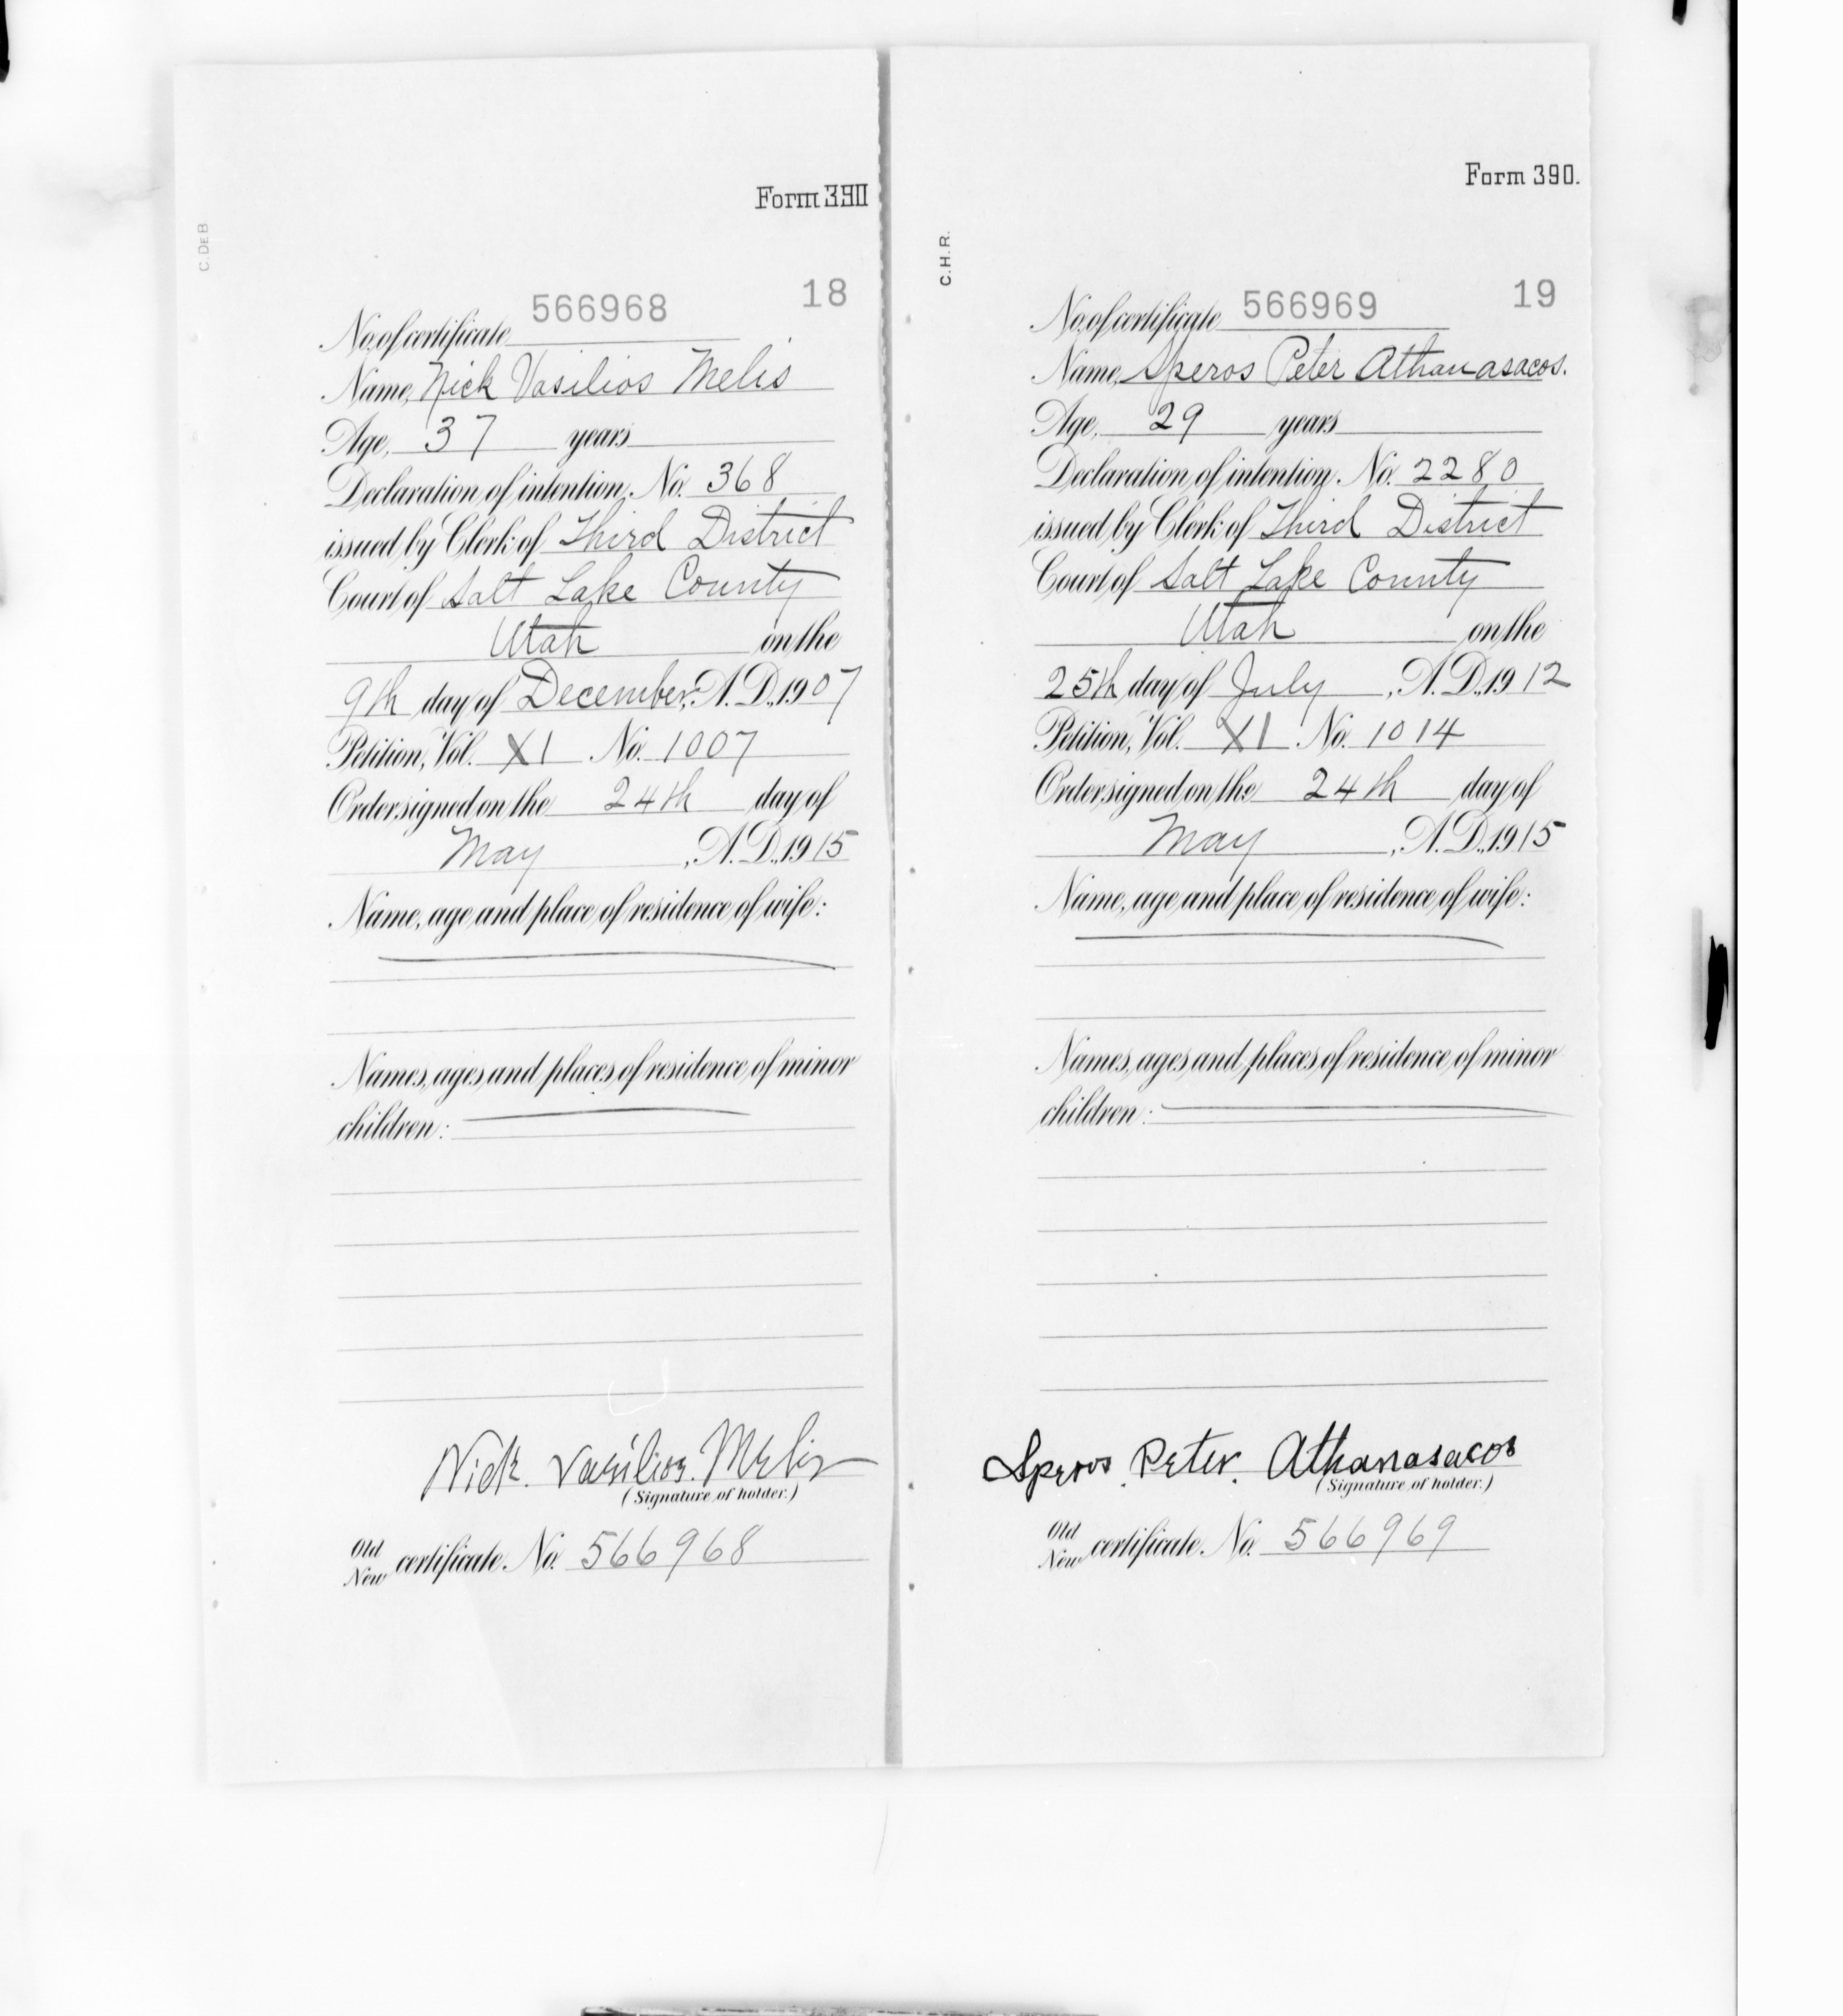 Form 390
C. DE B.
566968 18
No. of certificate
Name, Nick Vasilios Melis
Age, 37 years
Declaration of intention, No. 368
issued by Clerk of Third District
Court of Salt Lake County
Utah on the
9th day of December, A. D., 1907
Petition, Vol. XI No. 1007
Order signed on the 24th day of
May, A. D., 1915
Name, age and place of residence of wife:
Names, ages and places of residence of minor
children:
Nick. Vasilios. Melis
(Signature of holder.)
Old
New certificate. No. 566968
Form 390.
C. H. R.
566969 19
No. of certificate
Name, Speros Peter Athanasacos.
Age, 29 years
Declaration of intention, No. 2280
issued by Clerk of Third District
Court of Salt Lake County
Utah on the
25th day of July, A. D., 1912
Petition, Vol. XI No. 1014
Order signed on the 24th day of
May, A. D., 1915
Name, age and place of residence of wife:
Names, ages and places of residence of minor
children:
Speros. Peter. Athanasacos
(Signature of holder.)
Old
New certificate. No. 566969